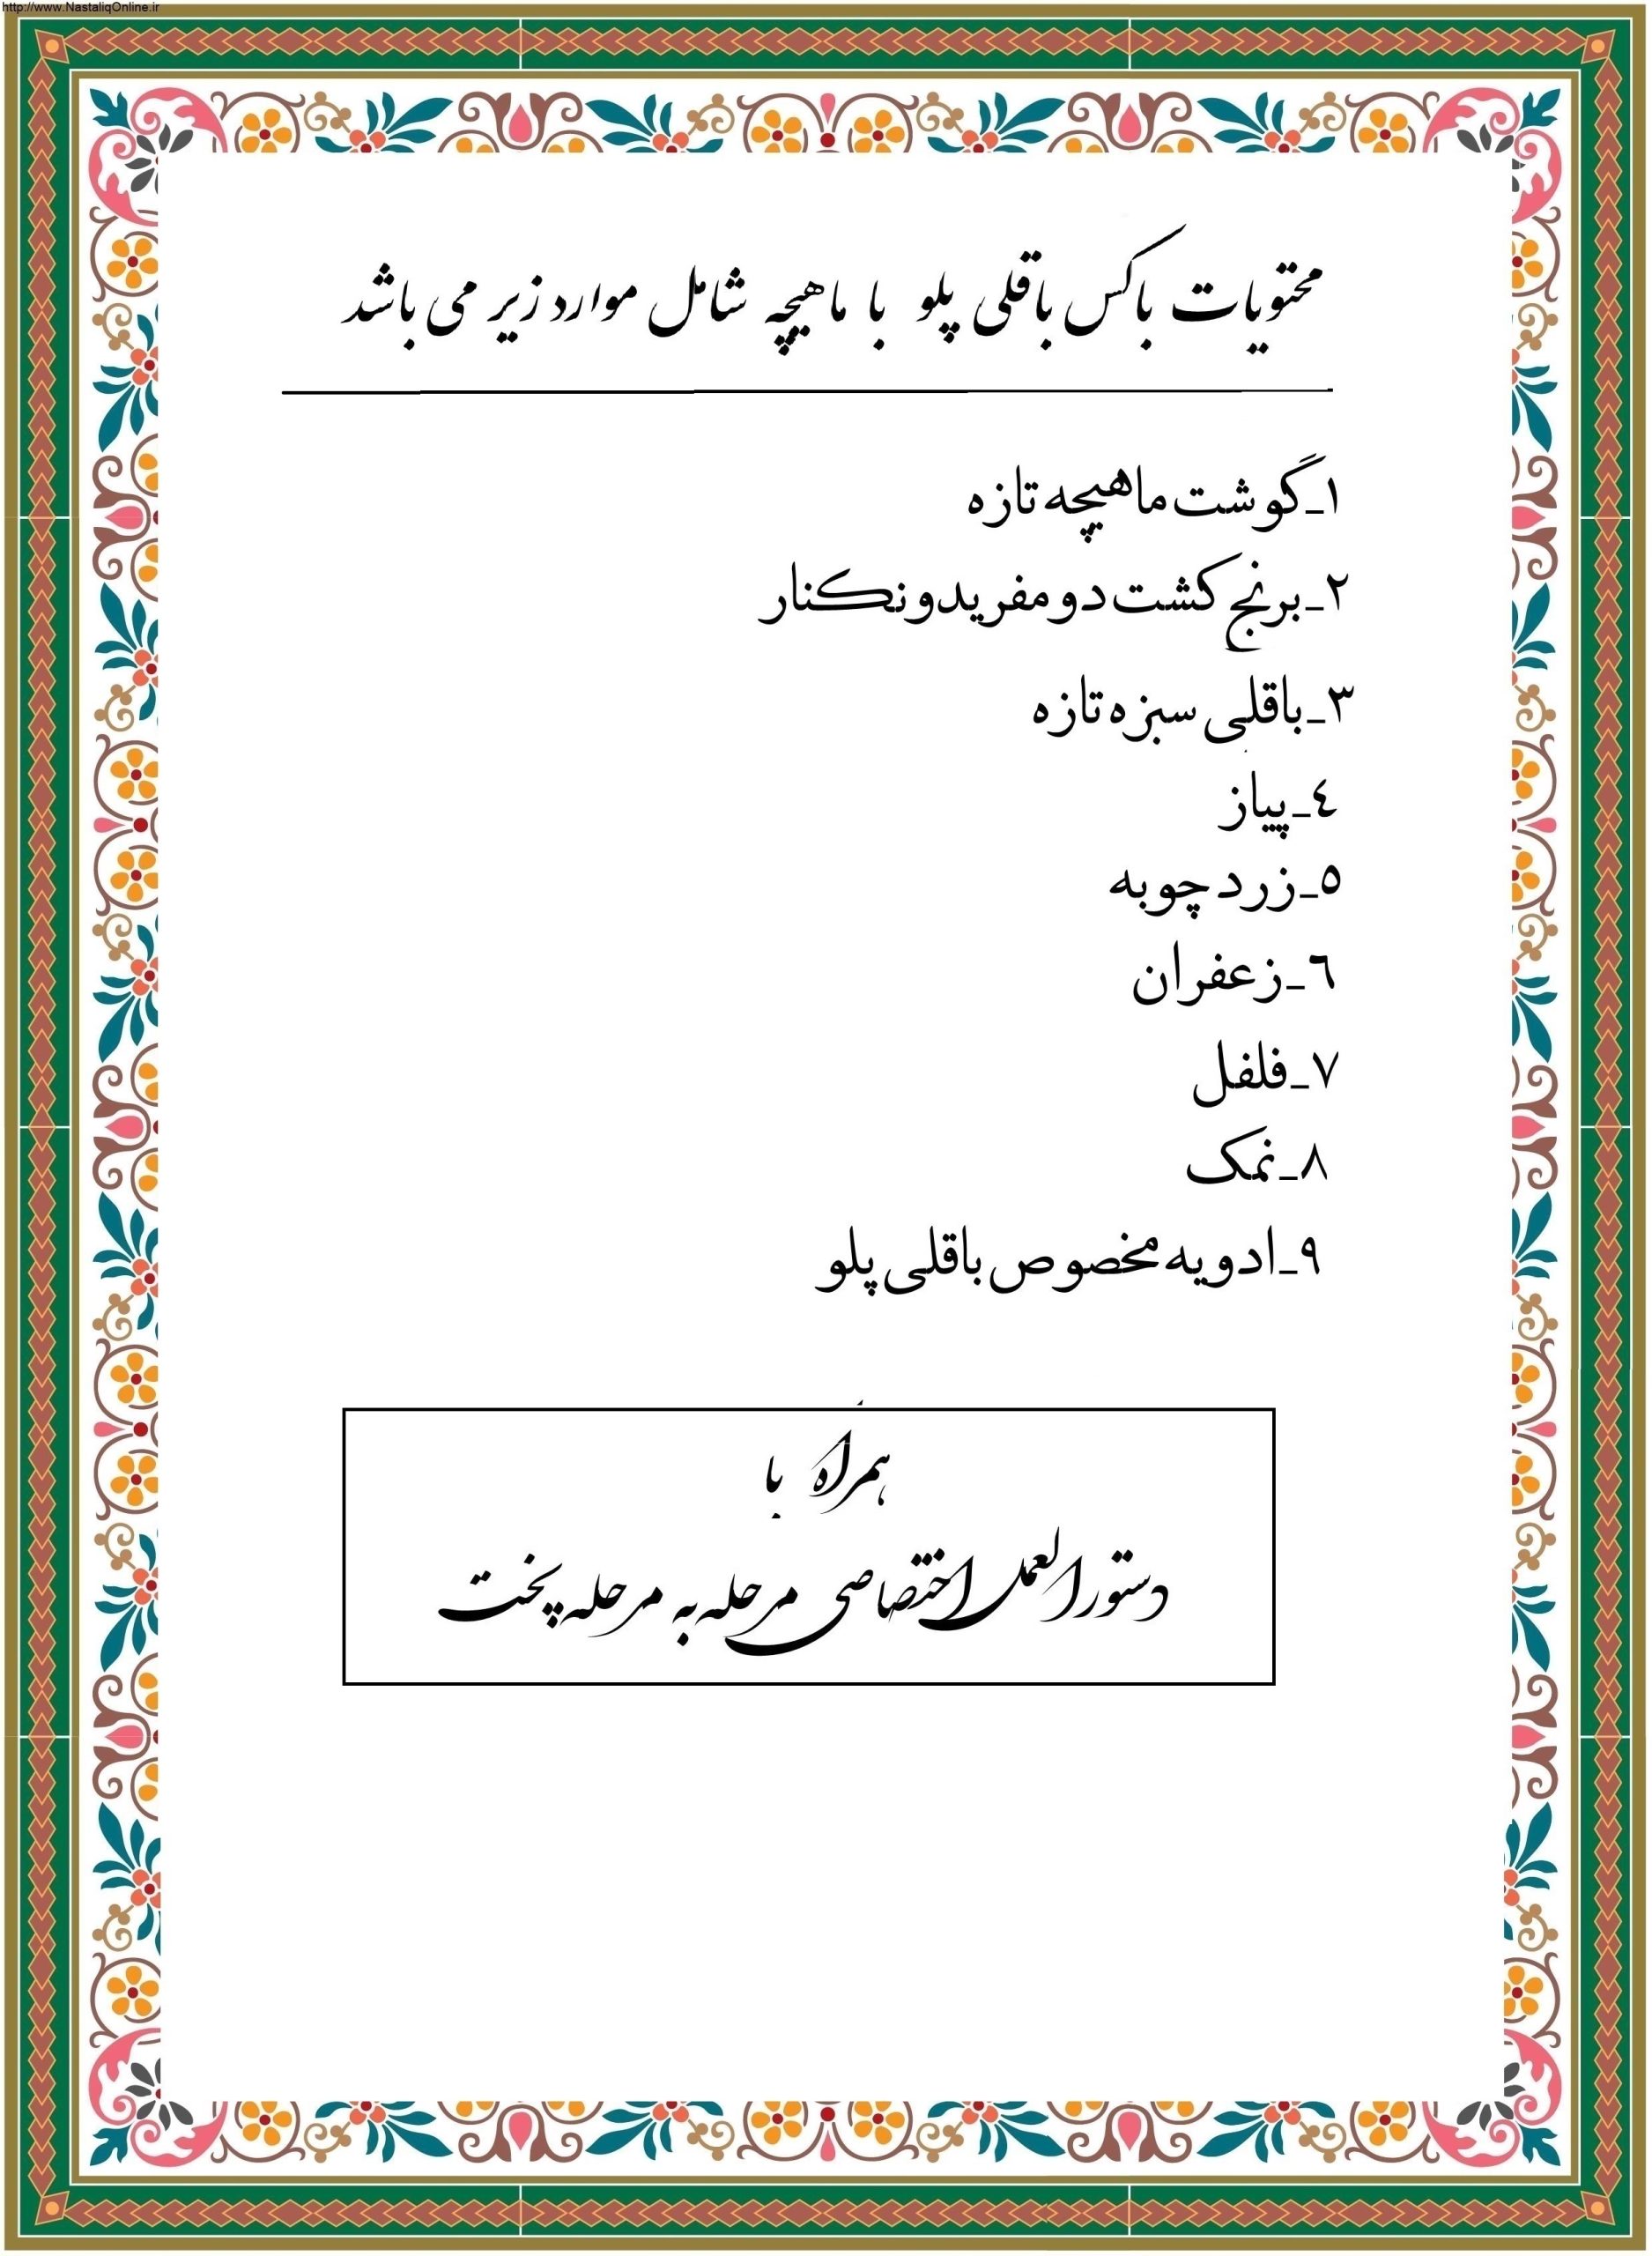 http://www.NastaliqOnline.ir
محتویات باکس باقلی پلو با ماهیچه شامل موارد زیر می باشد
١_گوشت ماهیچه تازه
٢_برنج کشت دو مفریدونکنار
٣_باقلی سبزه تازه
٤_پیاز
٥_زرد چوبه
٦_زعفران
٧_فلفل
٨_نمک
٩_ادویه مخصوص باقلی پلو
همراه با
دستورالعمل اختصاصی مرحله به مرحله پخت